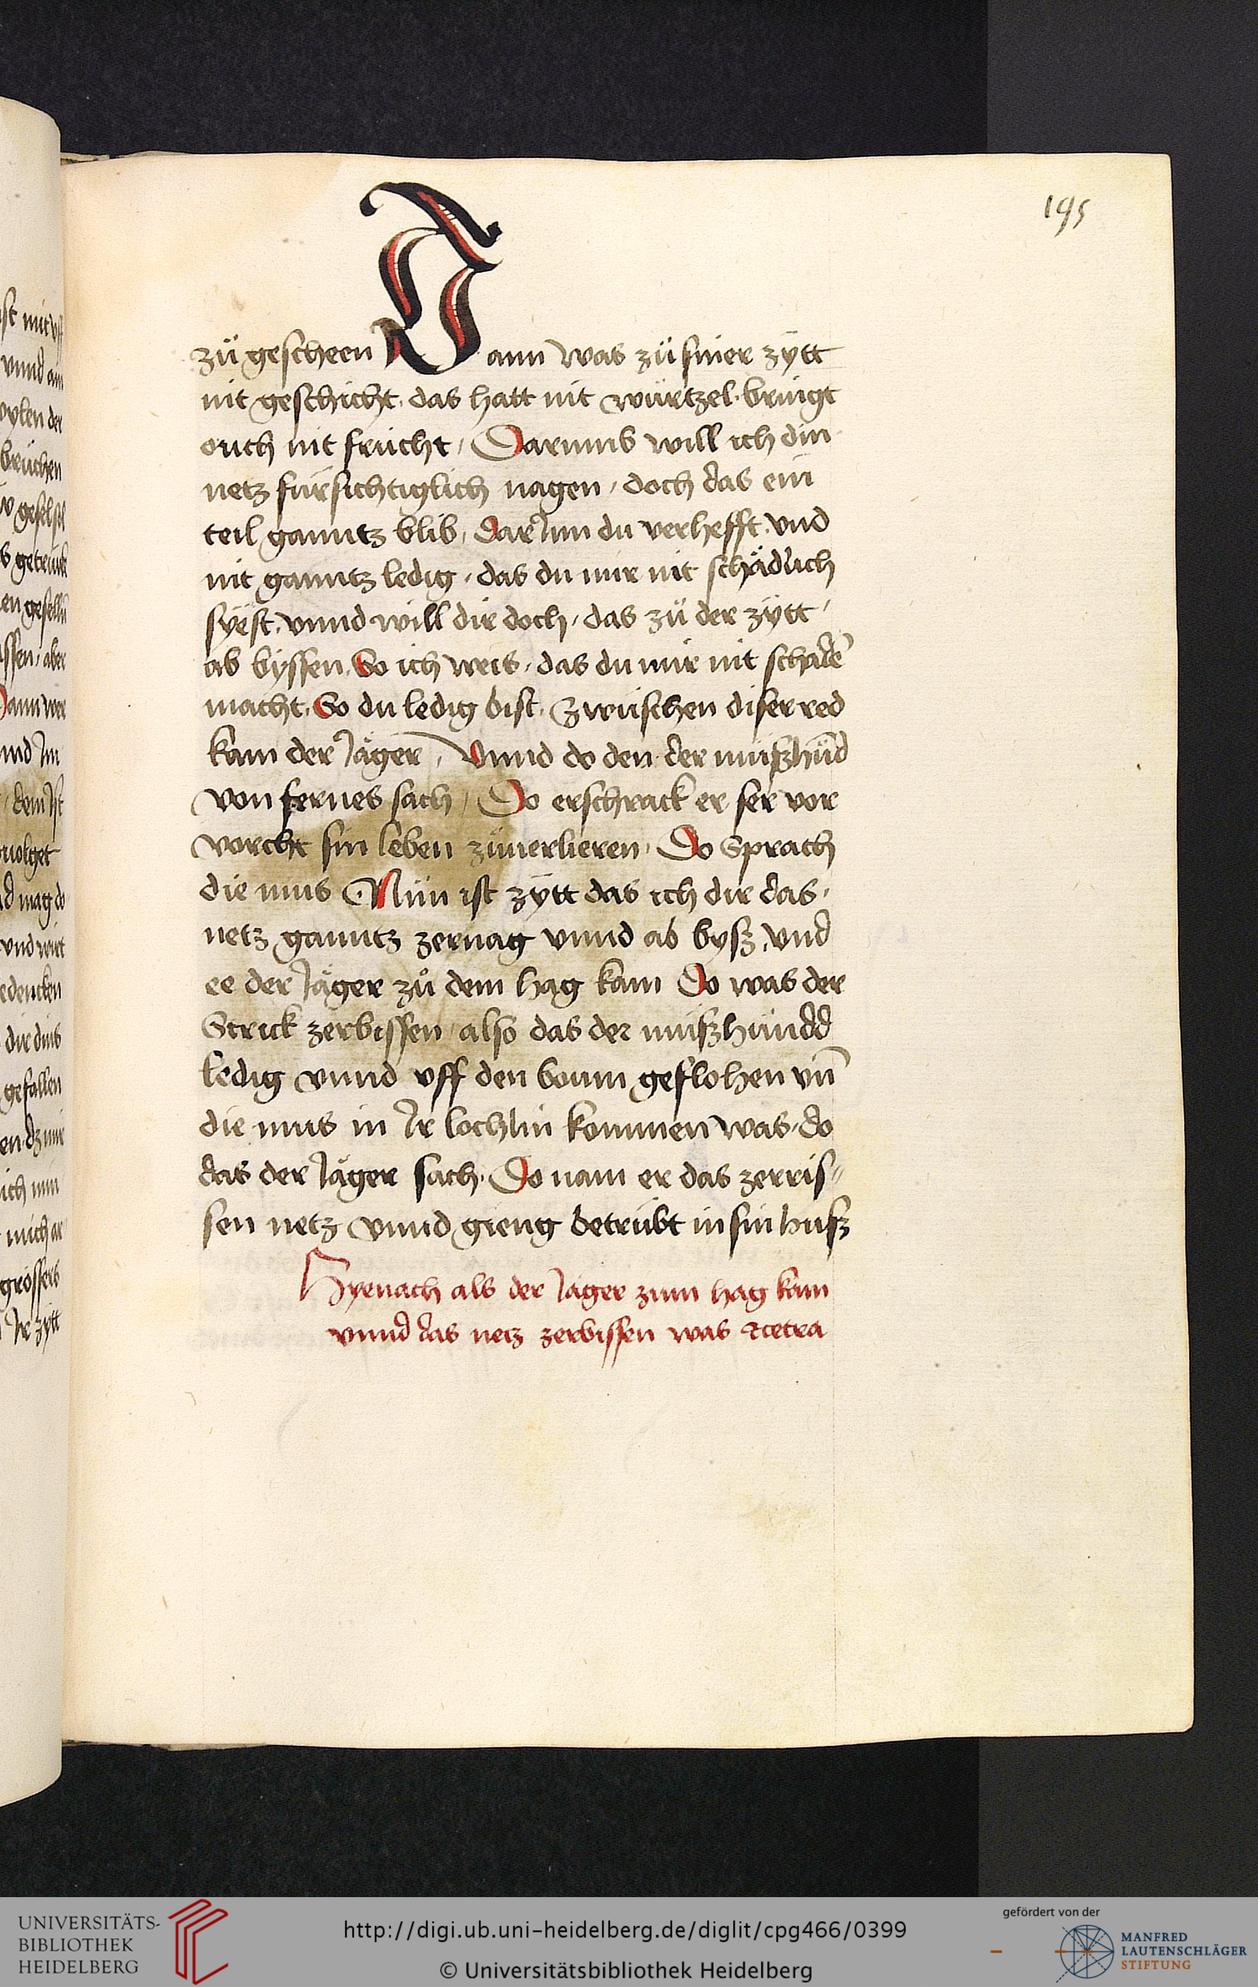 195
zů gescheen Dann was zů siner zytt
nit geschicht. das hatt nit wurtzel. bringt
ouch nit frucht / Darumb will ich din
netz fursichtiglich nagen / doch das ein
teil ganntz blib / dar Inn du verhefft. vnd
nit ganntz ledig / das du mir nit schädlich
syest. vnnd will dir doch / das zů der zytt /
ab byssen. So ich weis / das du mir nit schadē
macht. So du ledig bist. Zwuschen diser red
kam der Jäger / Vnnd do den der mußhund
von fernes sach / Do erschrack er ser vor
vorcht sin leben zůuerlieren. Do Sprach
die mus Nün ist zytt das ich dir das /
netz ganntz zernag vnnd ab byß. vnd
ee der Jäger zů dem hag kam Do was der
Strick zerbissen / also das der mußhundd
ledig vnnd vff den boum geflohen vn̄
die mus in Ir lochlin kommen was. do
das der Jäger sach. Do nam er das zerris⸗
sen netz vnnd gieng betrübt in sin huß
Hyenach als der Jager zum hag kam
vnnd das netz zerbissen was etcetra
UNIVERSITÄTS-
BIBLIOTHEK
HEIDELBERG
http://digi.ub.uni-heidelberg.de/diglit/cpg466/0399
© Universitätsbibliothek Heidelberg
gefördert von der
MANFRED
LAUTENSCHLÄGER
STIFTUNG